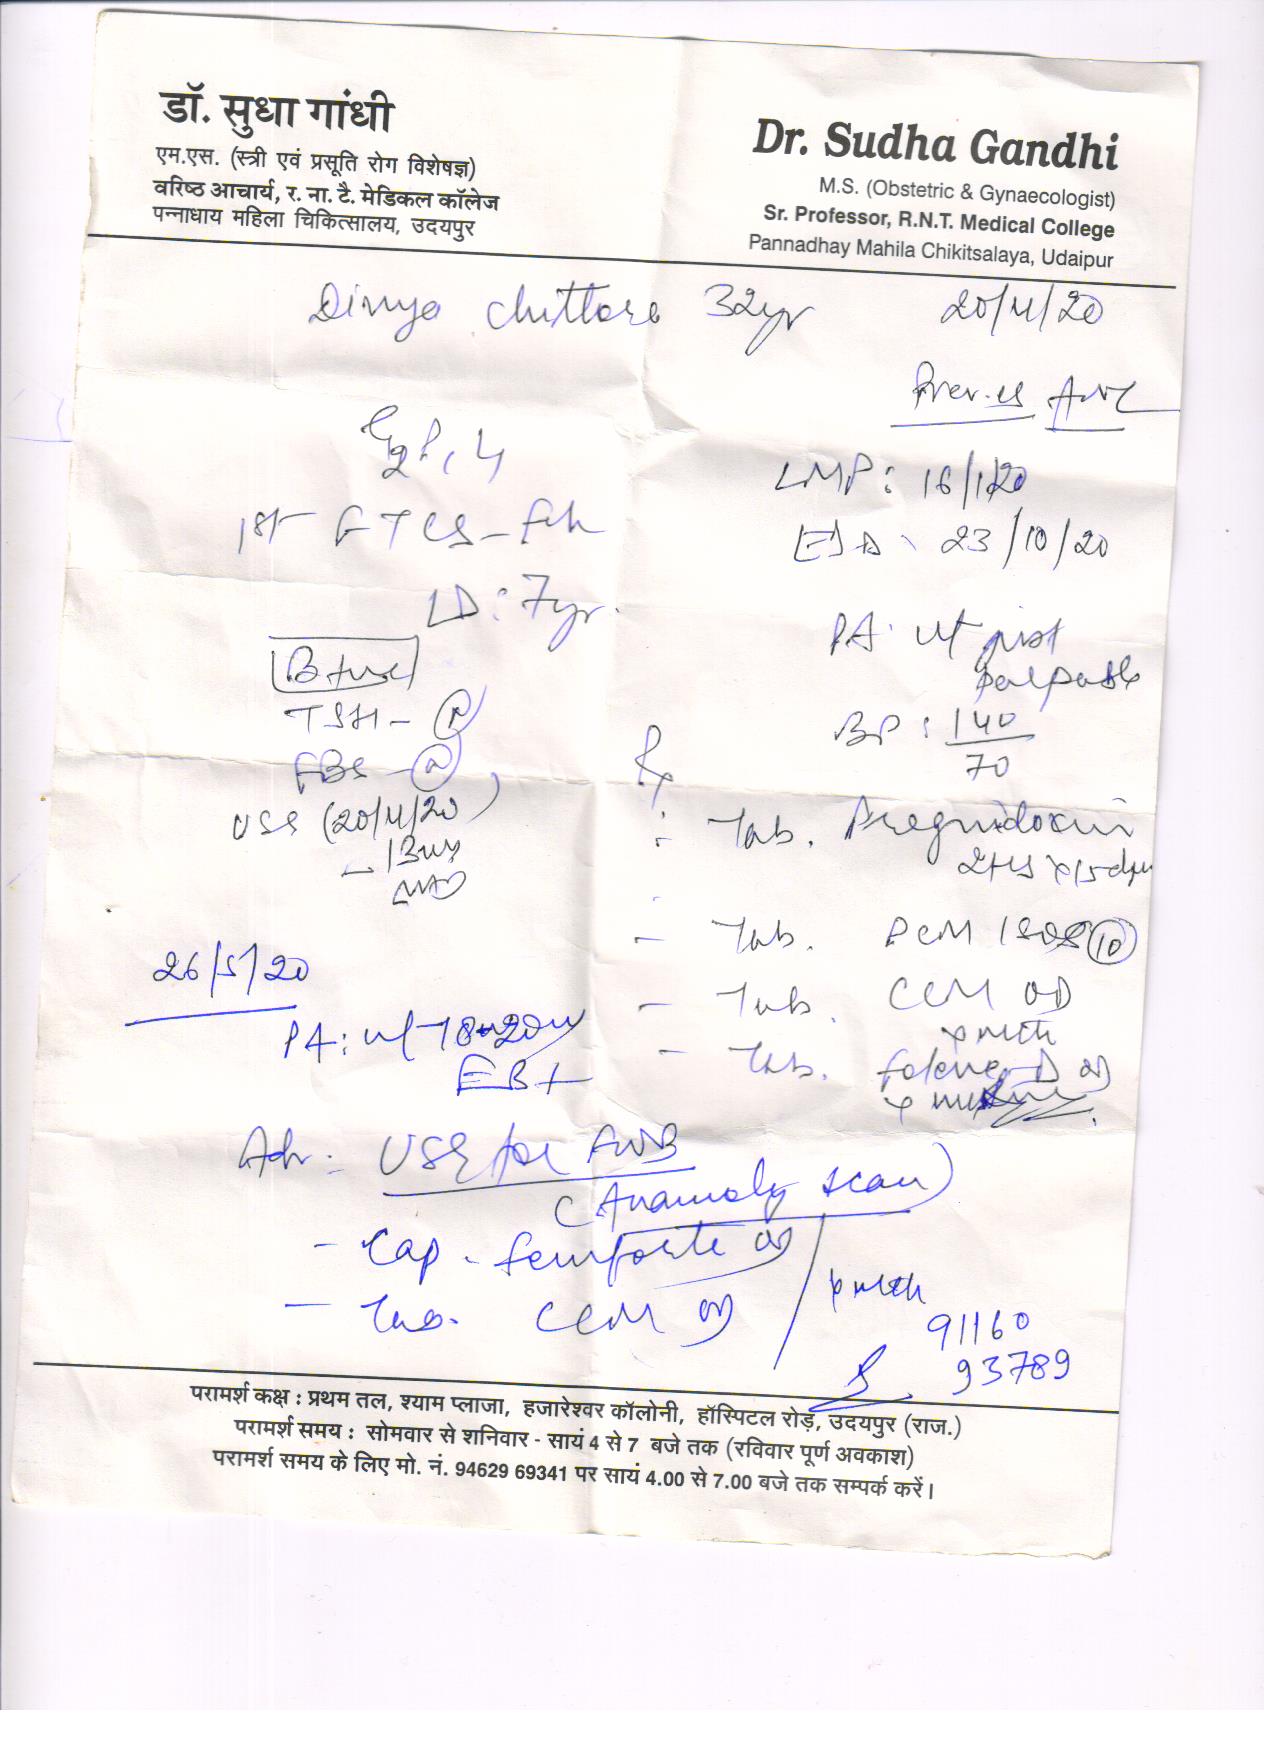 डॉ. सुधा गांधी
एम.एस. (स्त्री एवं प्रसूति रोग विशेषज्ञ)
वरिष्ठ आचार्य, र. ना. टै. मेडिकल कॉलेज
पन्नाधाय महिला चिकित्सालय, उदयपुर
Dr. Sudha Gandhi
M.S. (Obstetric & Gynaecologist)
Sr. Professor, R.N.T. Medical College
Pannadhay Mahila Chikitsalaya, Udaipur
32yr 20/4/20
LMP: 16/1/20
23/10/20
1st FTCS -
LD: 7yr.
PA: ut just
palpable
BP: 140
70
B +ve
TSH - N
FBS - N
USG (20/4/20)
Rx
- Tab. Pregnidoxin
- Tab. PCM 1 SOS 10
- Tab. CCM OD
x mth
- Tab.
26/5/20
PA: ut 18-20w
Adv: USG for FWB
(Anamoly scan)
- Cap. OD
- Tab. CCM OD
x mth
91160
93789
परामर्श कक्ष : प्रथम तल, श्याम प्लाजा, हजारेश्वर कॉलोनी, हॉस्पिटल रोड़, उदयपुर (राज.)
परामर्श समय : सोमवार से शनिवार - सायं 4 से 7 बजे तक (रविवार पूर्ण अवकाश)
परामर्श समय के लिए मो. नं. 94629 69341 पर सायं 4.00 से 7.00 बजे तक सम्पर्क करें।